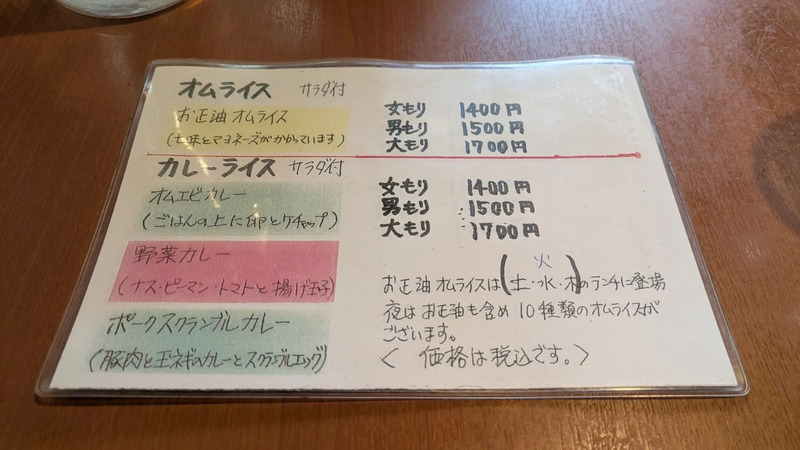 オムライス サラダ付
お正油 オムライス
(七味とマヨネーズがかかっています)
女もり 1400円
男もり 1500円
大もり 1700円
カレーライス サラダ付
オムエビカレー
(ごはんの上に卵とケチャップ)
野菜カレー
(ナス・ピーマン・トマトと揚げ玉子)
ポークスクランブルカレー
(豚肉と玉ネギのカレーとスクランブルエッグ)
女もり 1400円
男もり 1500円
大もり 1700円
火
お正油オムライスは(土・水・木)のランチに登場
夜はお正油も含め10種類のオムライスが
ございます。
< 価格は税込です。>